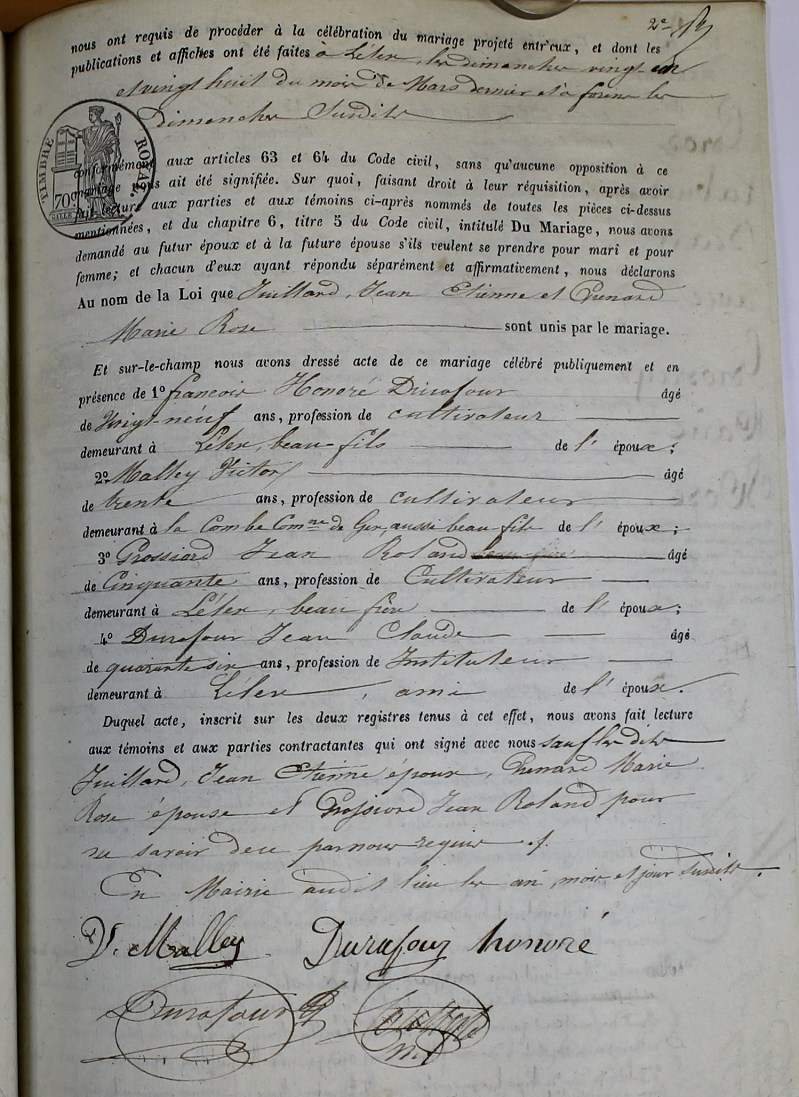 2e
nous ont requis de procéder à la célébration du mariage projeté entr'eux, et dont les
publications et affiches ont été faites à Lélex, les dimanches vingt un
et vingt huit du mois de Mars dernier et à forens les
Dimanches Susdits
TIMBRE ROYAL
70c
conformément aux articles 63 et 64 du Code civil, sans qu'aucune opposition à ce
mariage nous ait été signifiée. Sur quoi, faisant droit à leur réquisition, après avoir
fait lecture aux parties et aux témoins ci-après nommés de toutes les pièces ci-dessus
mentionnées, et du chapitre 6, titre 5 du Code civil, intitulé Du Mariage, nous avons
demandé au futur époux et à la future épouse s'ils veulent se prendre pour mari et pour
femme; et chacun d'eux ayant répondu séparément et affirmativement, nous déclarons
Au nom de la Loi que Juillard, Jean Etienne et Chenard
Marie Rose sont unis par le mariage.
Et sur-le-champ nous avons dressé acte de ce mariage célébré publiquement et en
présence de 1o françois Honoré Durafour âgé
de Vingt-neuf ans, profession de cultivateur
demeurant à Lélex, beau-fils de l' époux;
2o Malley Victor âgé
de trente ans, profession de cultivateur
demeurant à la Combe Comne de Gex, aussi beau fils de l' époux;
3o Grossiord Jean Roland âgé
de Cinquante ans, profession de Cultivateur
demeurant à Lélex, beau frère de l' époux;
4o Durafour Jean Claude âgé
de quarante six ans, profession de Instituteur
demeurant à Lélex, ami de l' époux.
Duquel acte, inscrit sur les deux registres tenus à cet effet, nous avons fait lecture
aux témoins et aux parties contractantes qui ont signé avec nous sauf les dits
Juillard, Jean Etienne époux, Chenard Marie
Rose épouse et Grossiord Jean Roland pour
ne savoir de ce par nous requis.
En Mairie audit lieu les an, mois et jour Susdits.
V. Malley Durafour honoré
Durafour